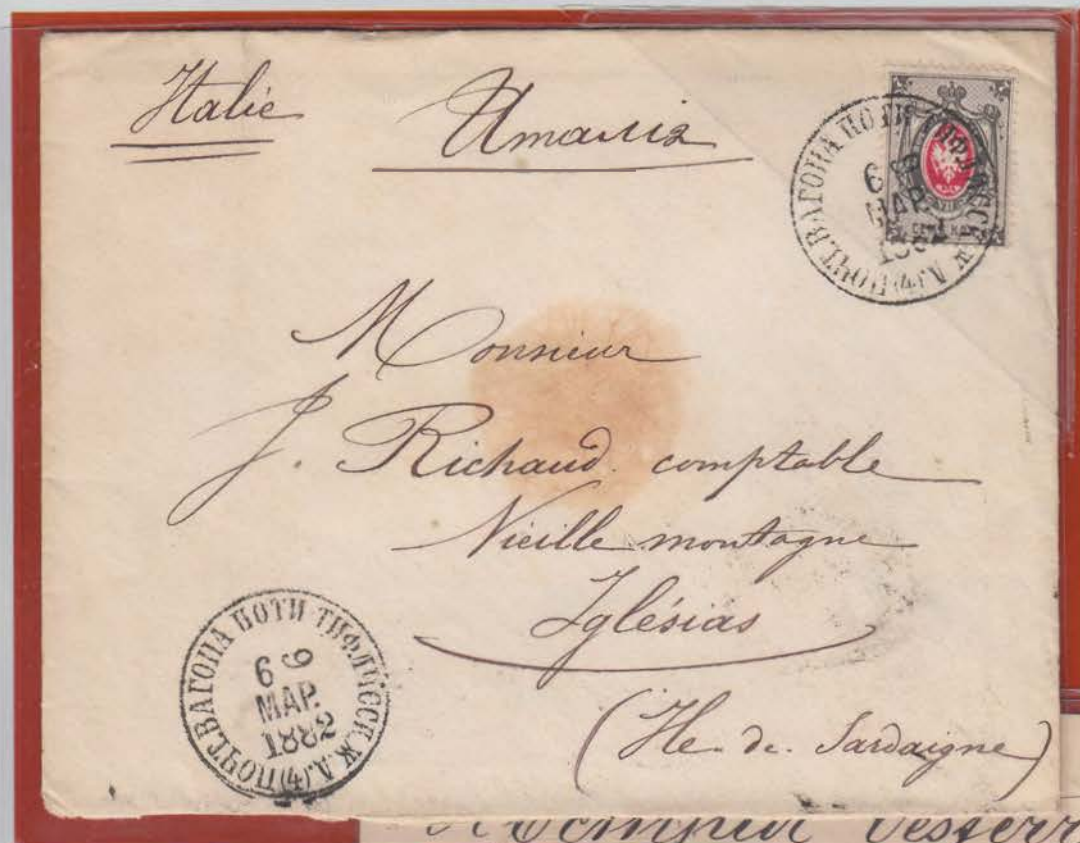 Italie Италія
ПОЧТ. ВАГОНА ПОТИ ТИФЛИССК. Ж. Д. (4)
6
МАР.
СЕМЬ КОП.
Monsieur
J. Richaud. comptable
Vieille montagne
Iglésias
(Ile. de. Sardaigne)
ПОЧТ. ВАГОНА ПОТИ ТИФЛИССК. Ж. Д. (4)
6 9
МАР.
1882